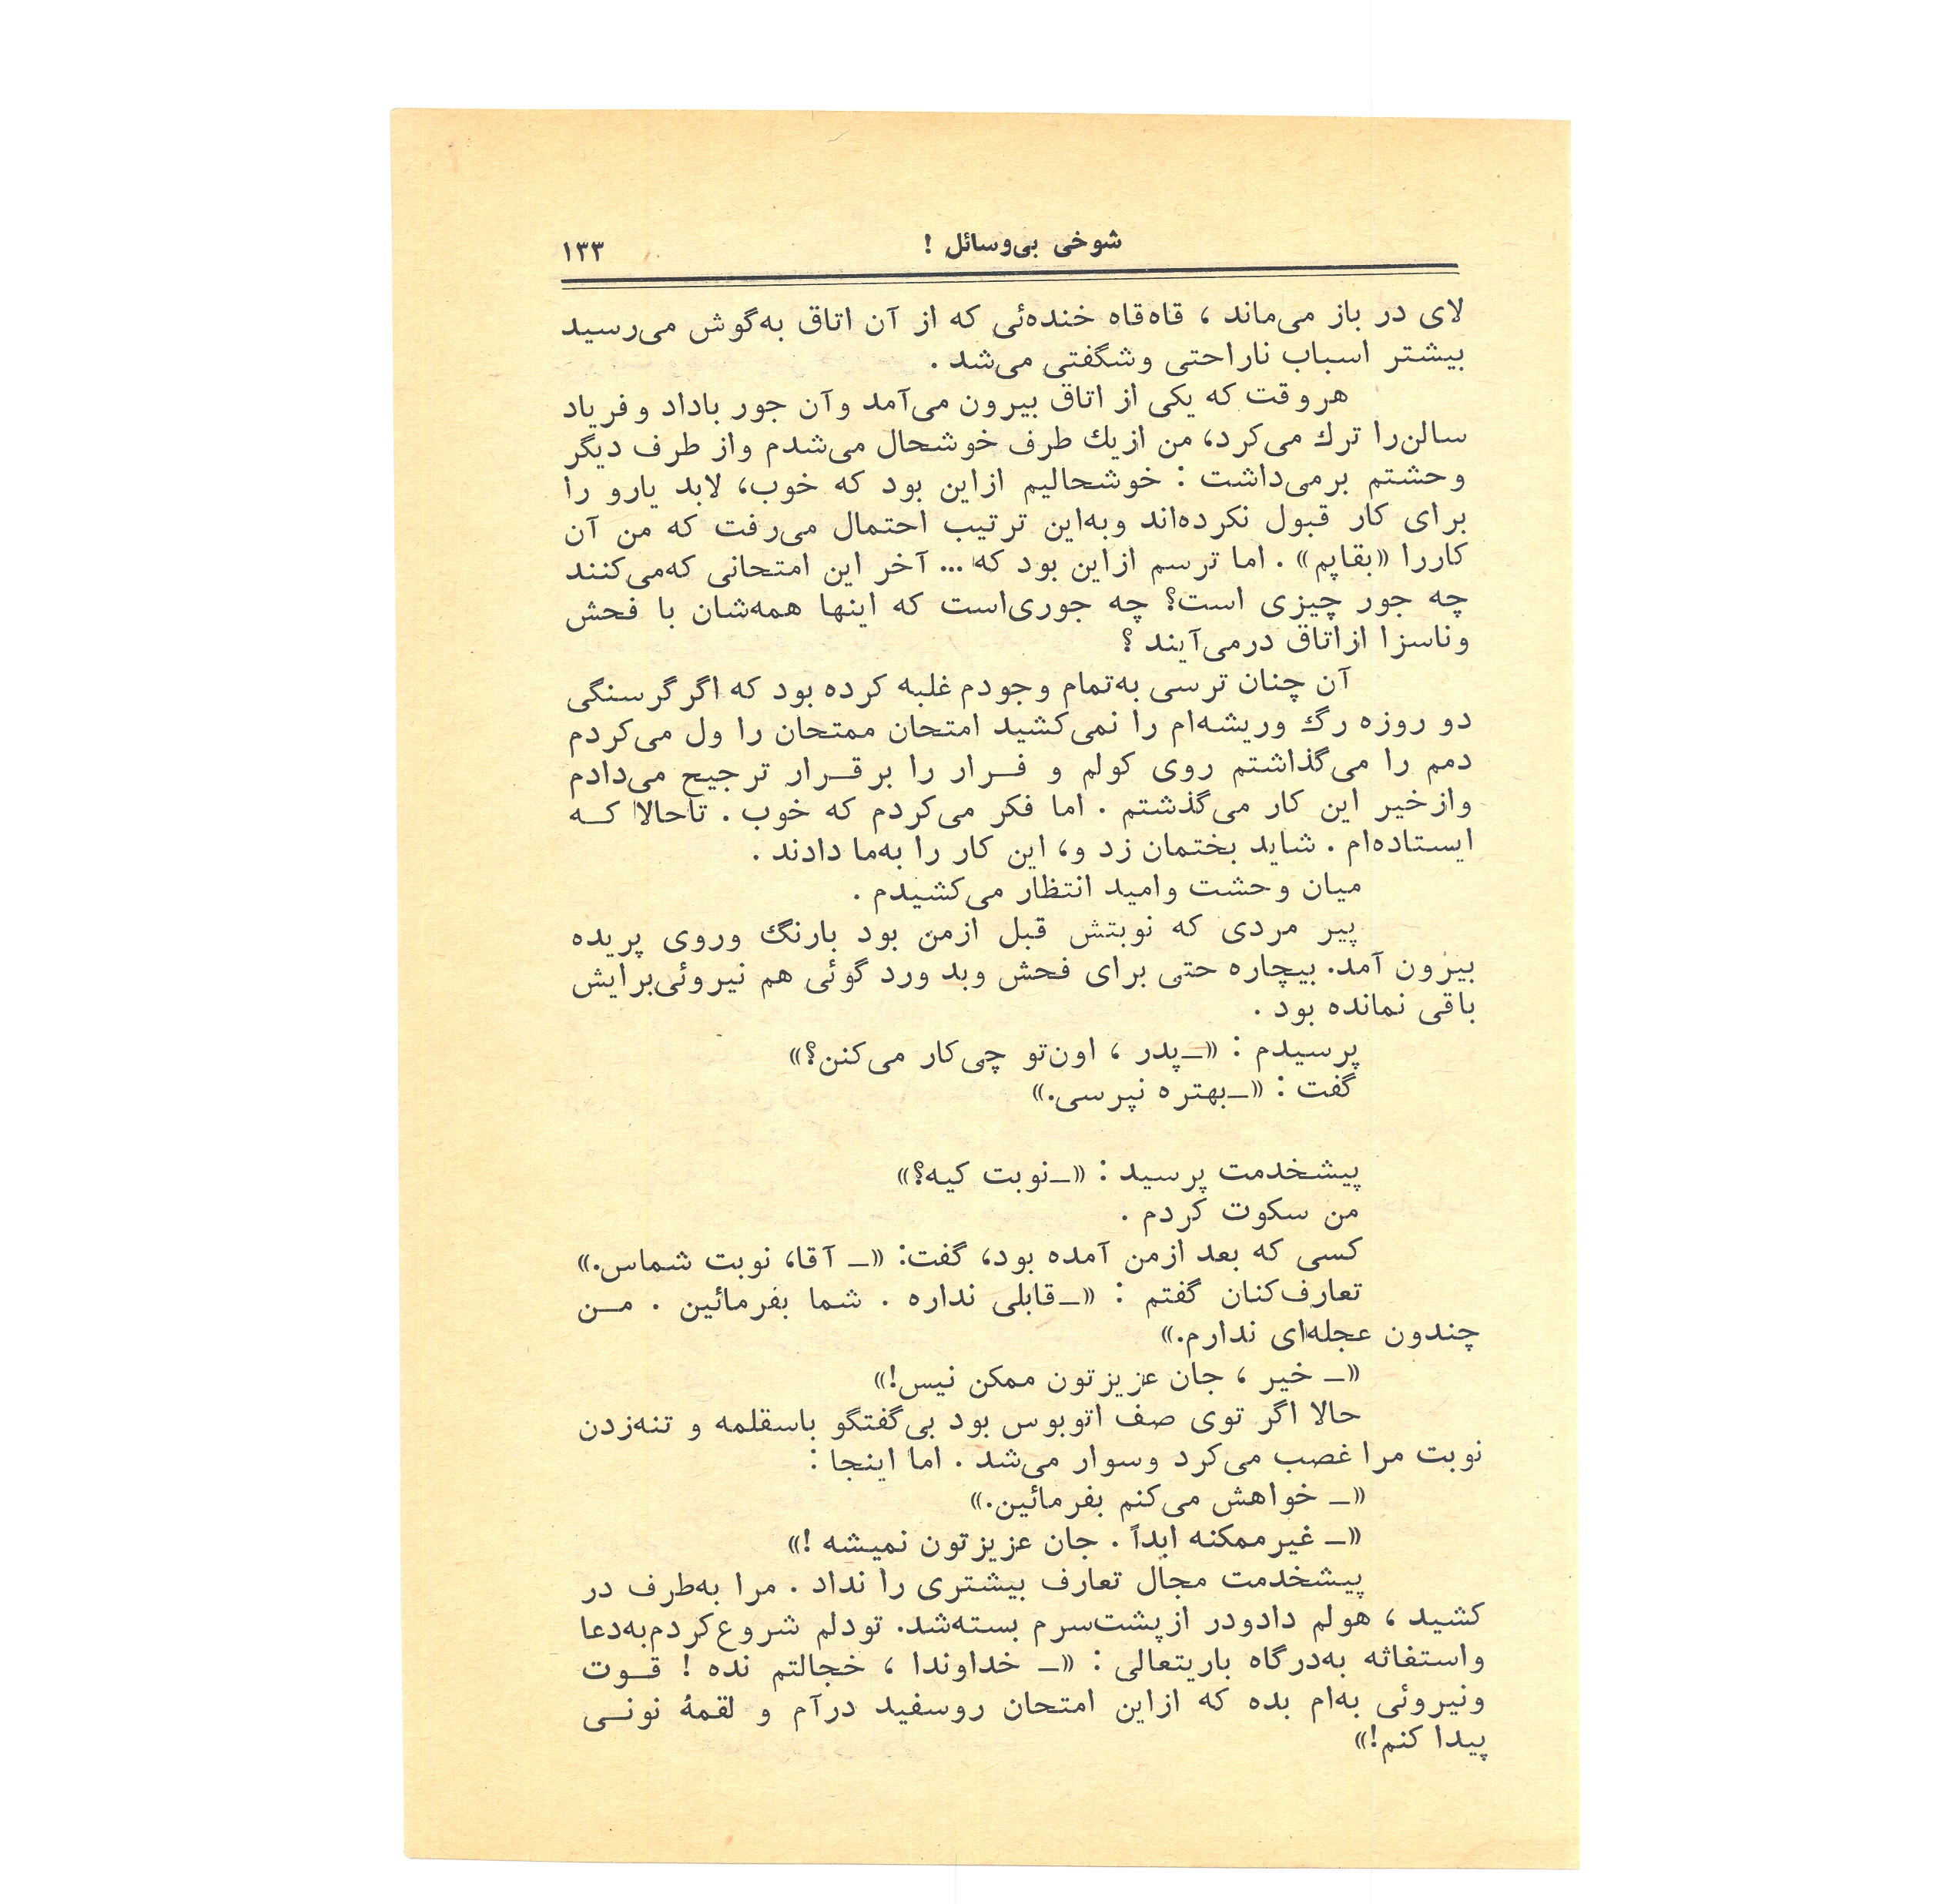 شوخی بی‌وسائل !
۱۳۳
لای در باز می‌ماند ، قاه‌قاه خنده‌ئی که از آن اتاق به‌گوش می‌رسید
بیشتر اسباب ناراحتی وشگفتی می‌شد .
هروقت که یکی از اتاق بیرون می‌آمد وآن جور باداد وفریاد
سالن‌را ترك می‌کرد، من ازیك طرف خوشحال می‌شدم واز طرف دیگر
وحشتم برمی‌داشت : خوشحالیم ازاین بود که خوب، لابد یارو را
برای کار قبول نکرده‌اند وبه‌این ترتیب احتمال می‌رفت که من آن
کاررا «بقاپم» . اما ترسم ازاین بود که ... آخر این امتحانی که‌می‌کنند
چه جور چیزی است؟ چه جوری‌است که اینها همه‌شان با فحش
وناسزا ازاتاق درمی‌آیند ؟
آن چنان ترسی به‌تمام وجودم غلبه کرده بود که اگر گرسنگی
دو روزه رگ وریشه‌ام را نمی‌کشید امتحان ممتحان را ول می‌کردم
دمم را می‌گذاشتم روی کولم و فـرار را برقـرار ترجیح می‌دادم
وازخیر این کار می‌گذشتم . اما فکر می‌کردم که خوب . تاحالا کـه
ایستاده‌ام . شاید بختمان زد و، این کار را به‌ما دادند .
میان وحشت وامید انتظار می‌کشیدم .
پیر مردی که نوبتش قبل ازمن بود بارنگ وروی پریده
بیرون آمد. بیچاره حتی برای فحش وبد ورد گوئی هم نیروئی‌برایش
باقی نمانده بود .
پرسیدم : «ــ‌پدر ، اون‌تو چی‌کار می‌کنن؟»
گفت : «ــ‌بهتره نپرسی.»
پیشخدمت پرسید : «ــ‌نوبت کیه؟»
من سکوت کردم .
کسی که بعد ازمن آمده بود، گفت: «ــ آقا، نوبت شماس.»
تعارف‌کنان گفتم : «ــ‌قابلی نداره . شما بفرمائین . مـن
چندون عجله‌ای ندارم.»
«ــ خیر ، جان عزیزتون ممکن نیس!»
حالا اگر توی صف اتوبوس بود بی‌گفتگو باسقلمه و تنه‌زدن
نوبت مرا غصب می‌کرد وسوار می‌شد . اما اینجا :
«ــ خواهش می‌کنم بفرمائین.»
«ــ غیرممکنه ابداً . جان عزیزتون نمیشه !»
پیشخدمت مجال تعارف بیشتری را نداد . مرا به‌طرف در
کشید ، هولم دادودر ازپشت‌سرم بسته‌شد. تودلم شروع‌کردم‌به‌دعا
واستفاثه به‌درگاه باریتعالی : «ــ خداوندا ، خجالتم نده ! قـوت
ونیروئی به‌ام بده که ازاین امتحان روسفید درآم و لقمهٔ نونـی
پیدا کنم!»